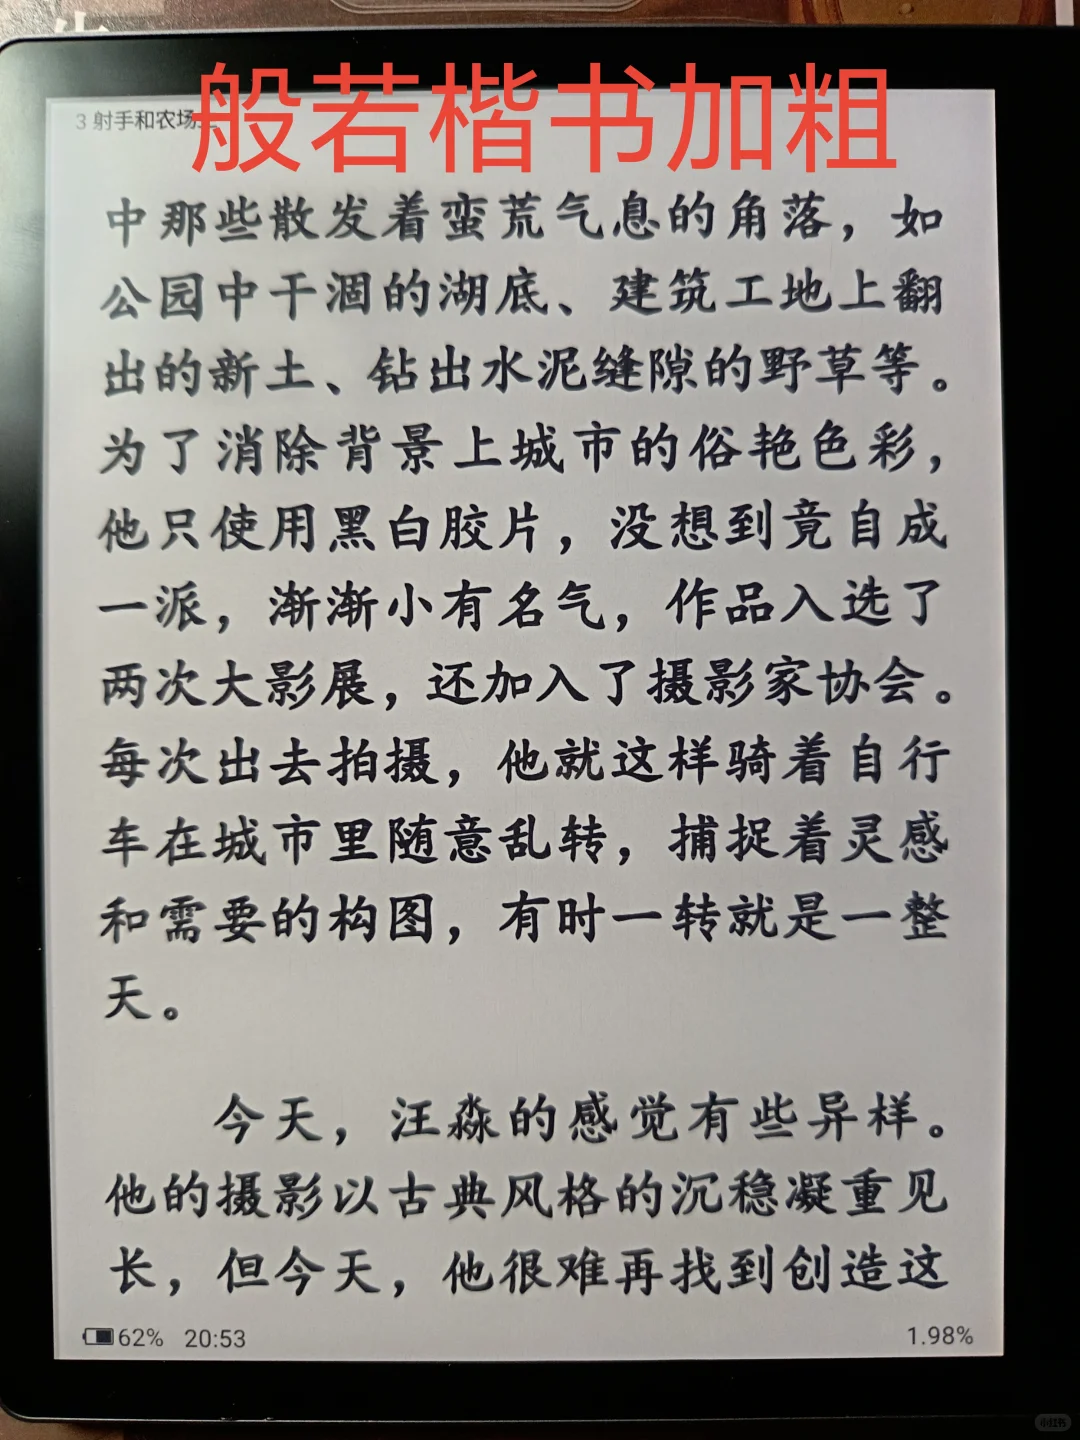 般若楷书加粗
3 射手和农场
中那些散发着蛮荒气息的角落，如
公园中干涸的湖底、建筑工地上翻
出的新土、钻出水泥缝隙的野草等。
为了消除背景上城市的俗艳色彩，
他只使用黑白胶片，没想到竟自成
一派，渐渐小有名气，作品入选了
两次大影展，还加入了摄影家协会。
每次出去拍摄，他就这样骑着自行
车在城市里随意乱转，捕捉着灵感
和需要的构图，有时一转就是一整
天。
今天，汪淼的感觉有些异样。
他的摄影以古典风格的沉稳凝重见
长，但今天，他很难再找到创造这
62% 20:53
1.98%
小红书